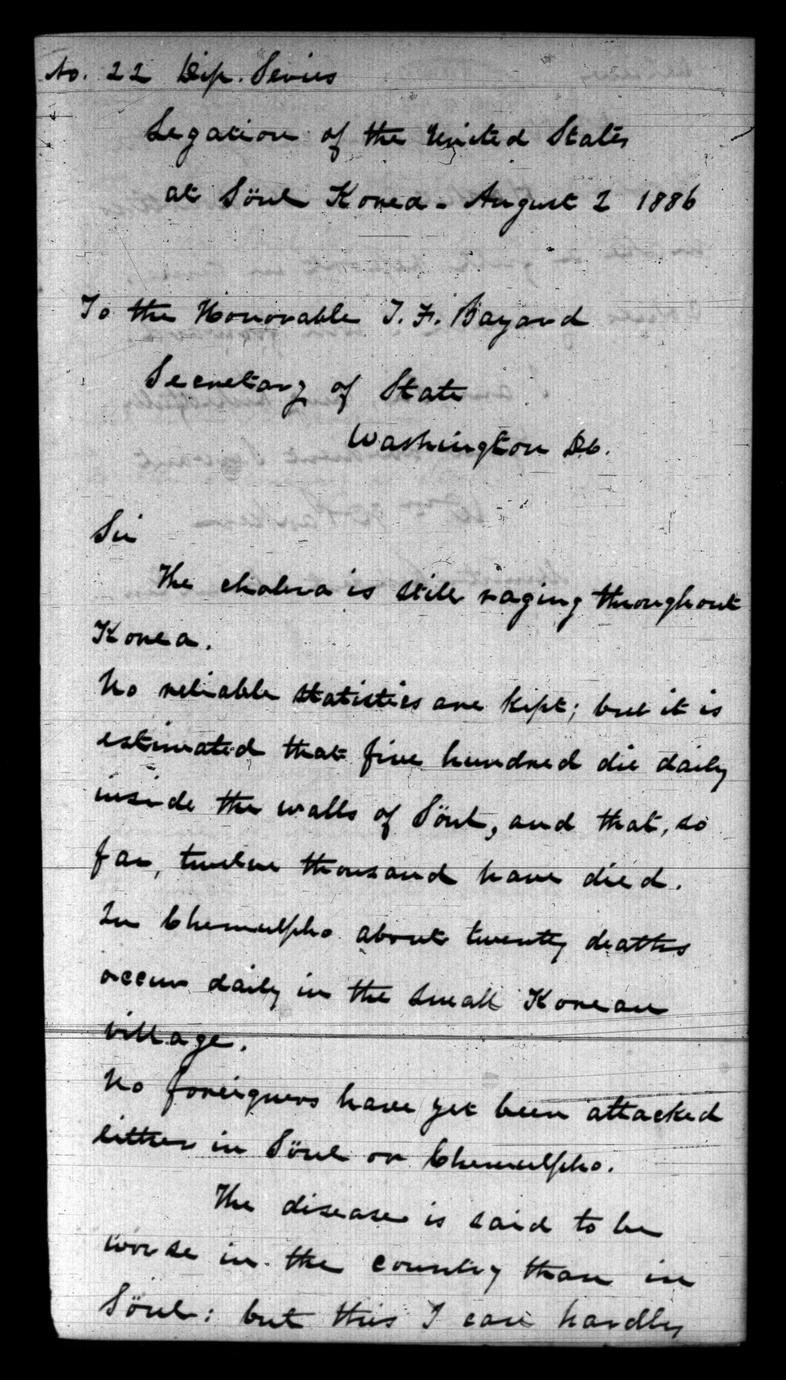 No. 22 Dip. Series
Legation of the United States
at Söul Korea - August 2 1886
To the Honorable T. F. Bayard
Secretary of State
Washington DC.
Sir
The cholera is still raging throughout
Korea.
No reliable statistics are kept; but it is
estimated that five hundred die daily
inside the walls of Söul, and that, so
far, twelve thousand have died.
In Chemulpho about twenty deaths
occur daily in the small Korean
village.
No foreigners have yet been attacked
either in Söul or Chemulpho.
The disease is said to be
worse in the country than in
Söul: but this I can hardly